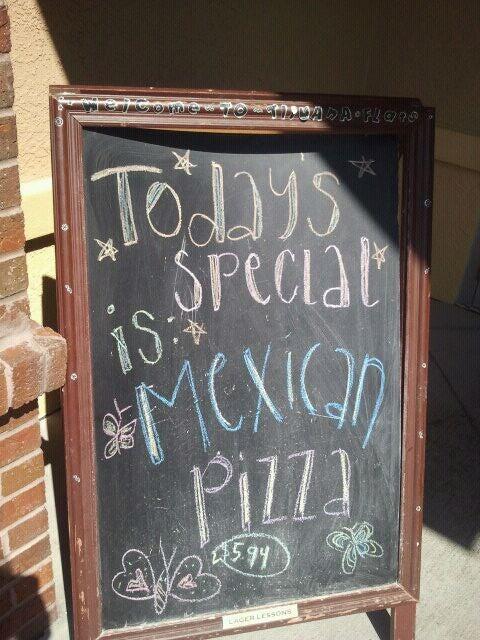 Welcome-To-Tijuana-Flats
Today's
special
is:
Mexican
Pizza
$5.94
LAGER LESSONS